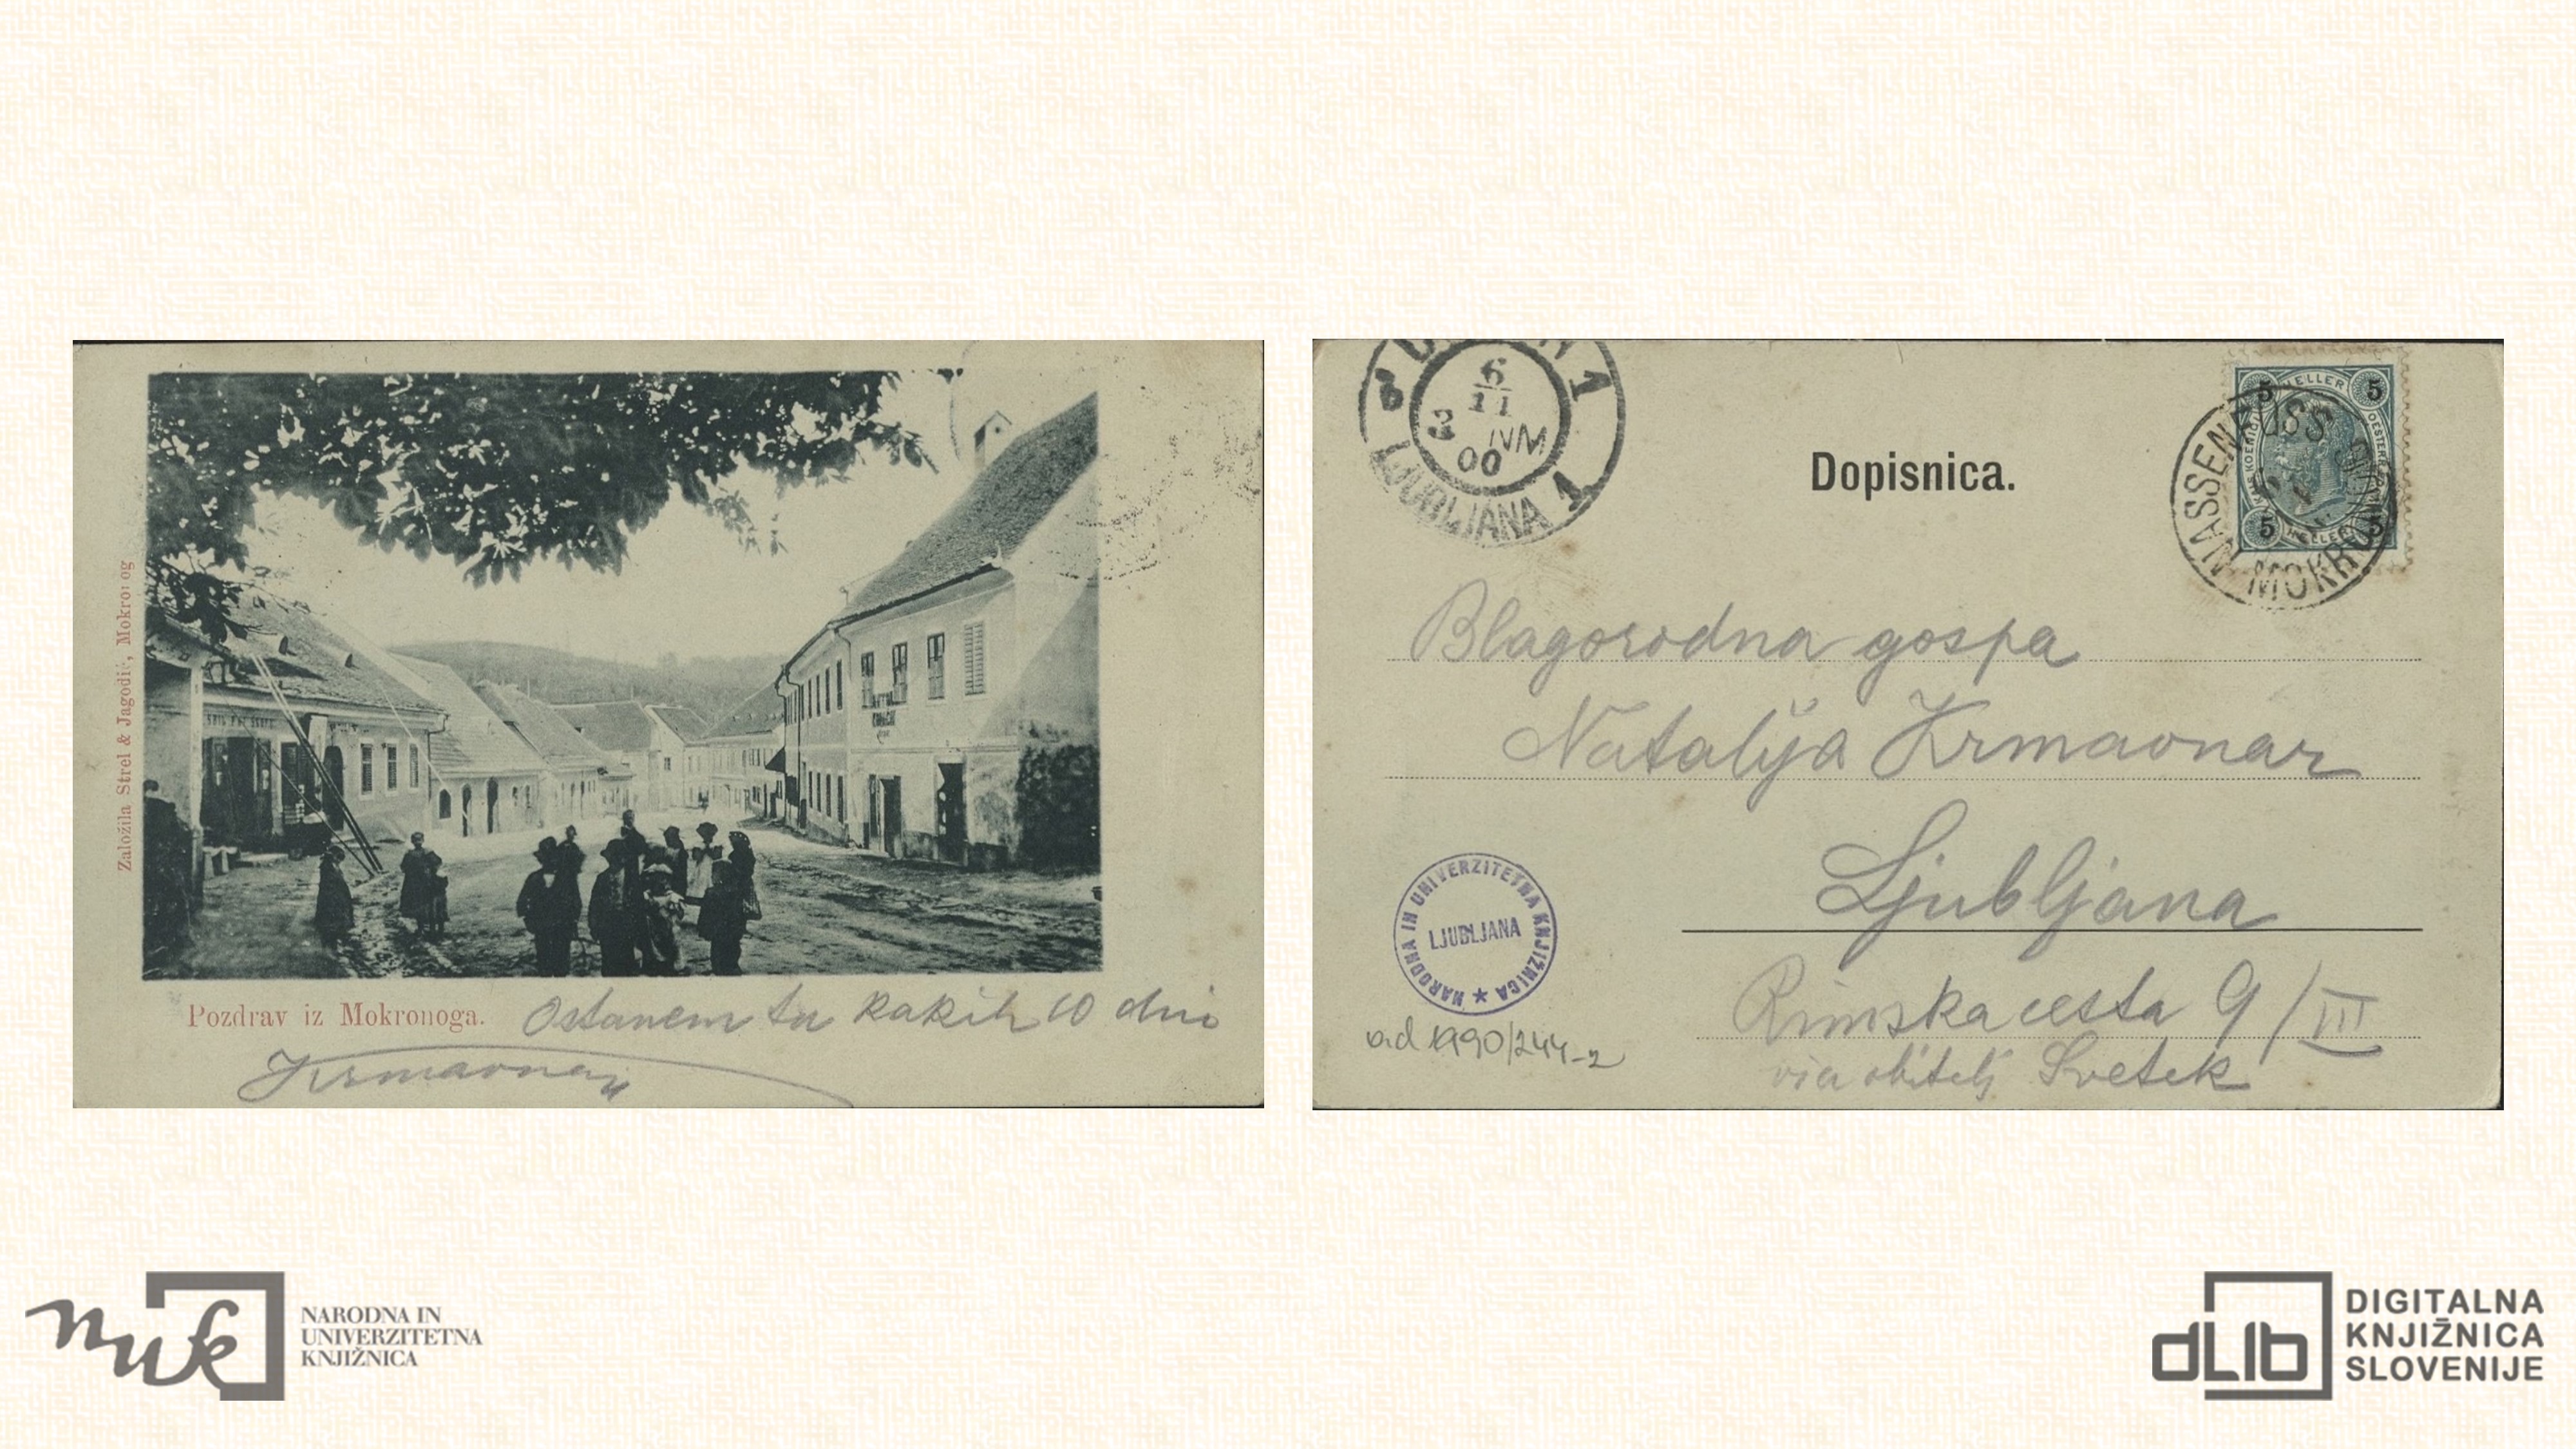 Založila Strel & Jagodič, Mokronog
Pozdrav iz Mokronoga. Ostanem tu kakih 10 dni
Krmavnar
6
11
3 NM
00
LJUBLJANA 1
Dopisnica.
5 HELLER 5
NASSENFUSS
MOKRONOG
Blagorodna gospa
Natalija Krmavnar
Ljubljana
Rimska cesta 9/III
via obitelj Svetek
NARODNA IN UNIVERZITETNA KNJIŽNICA
LJUBLJANA
ad 1990/244-2
nuk
NARODNA IN
UNIVERZITETNA
KNJIŽNICA
dLib
DIGITALNA
KNJIŽNICA
SLOVENIJE